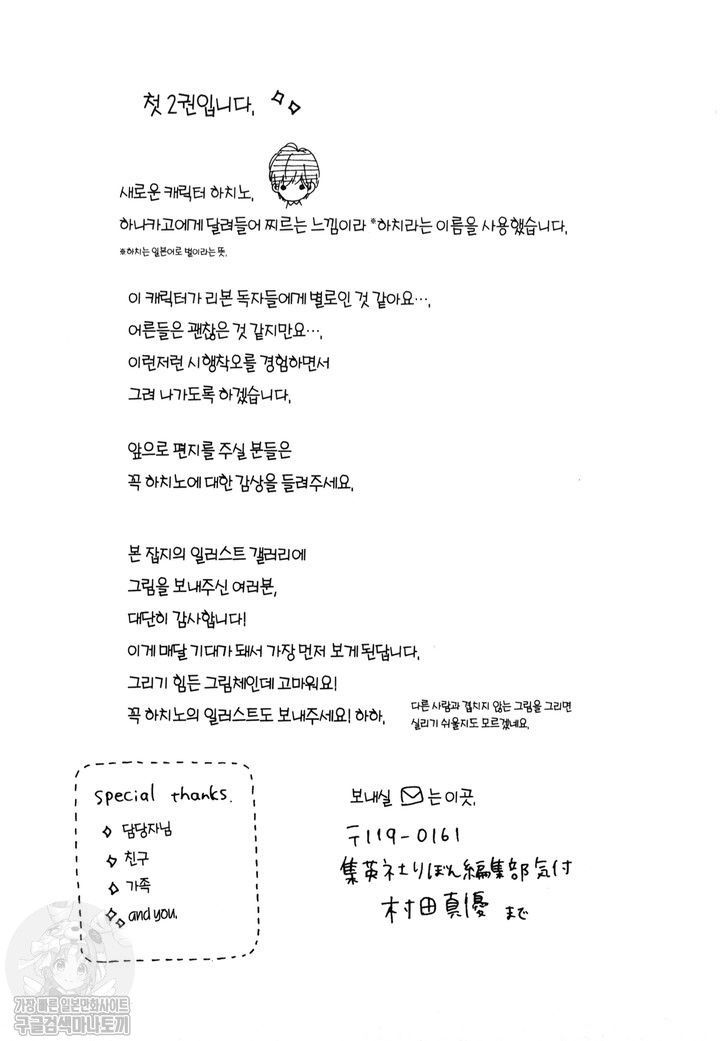 첫 2권입니다.
새로운 캐릭터 하치노.
하나카고에게 달려들어 찌르는 느낌이라 *하치라는 이름을 사용했습니다.
*하치는 일본어로 벌이라는 뜻.
이 캐릭터가 리본 독자들에게 별로인 것 같아요….
어른들은 괜찮은 것 같지만요….
이런저런 시행착오를 경험하면서
그려 나가도록 하겠습니다.
앞으로 편지를 주실 분들은
꼭 하치노에 대한 감상을 들려주세요.
본 잡지의 일러스트 갤러리에
그림을 보내주신 여러분,
대단히 감사합니다!
이게 매달 기대가 돼서 가장 먼저 보게 된답니다.
그리기 힘든 그림체인데 고마워요!
꼭 하치노의 일러스트도 보내주세요! 하하.
다른 사람과 겹치지 않는 그림을 그리면
실리기 쉬울지도 모르겠네요.
special thanks.
담당자님
친구
가족
and you.
보내실 는 이곳.
〒119-0161
集英社りぼん編集部気付
村田真優 まで
가장 빠른 일본만화사이트
구글검색마나토끼